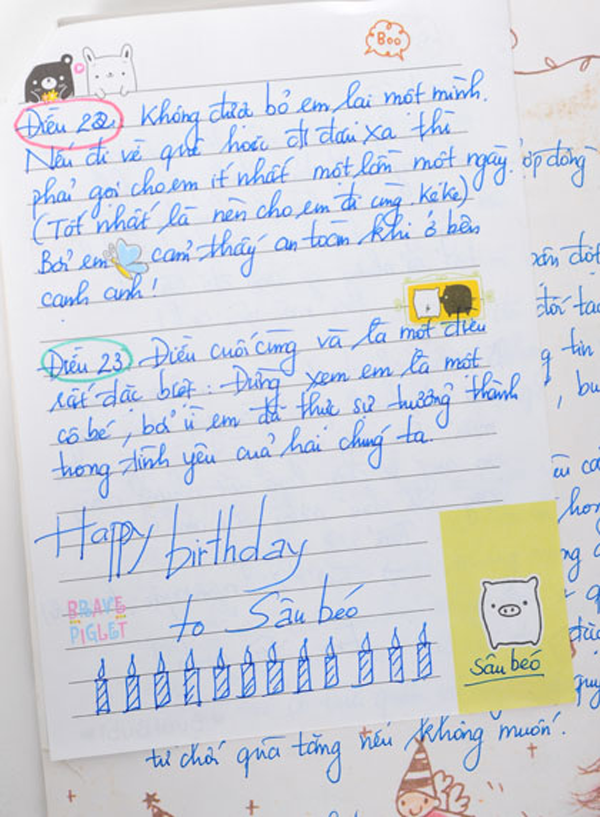 Boo
Điều 22. Không được bỏ em lại một mình.
Nếu đi về quê hoặc đi đâu xa thì
phải gọi cho em ít nhất một lần một ngày.
(Tốt nhất là nên cho em đi cùng. Keke)
Bởi em cảm thấy an toàn khi ở bên
cạnh anh!
Điều 23. Điều cuối cùng và là một điều
rất đặc biệt: Đừng xem em là một
cô bé, bởi vì em đã thực sự trưởng thành
trong tình yêu của hai chúng ta.
Happy birthday
to Sâu béo
BRAVE
PIGLET
Sâu béo
từ chối quà tặng nếu không muốn.